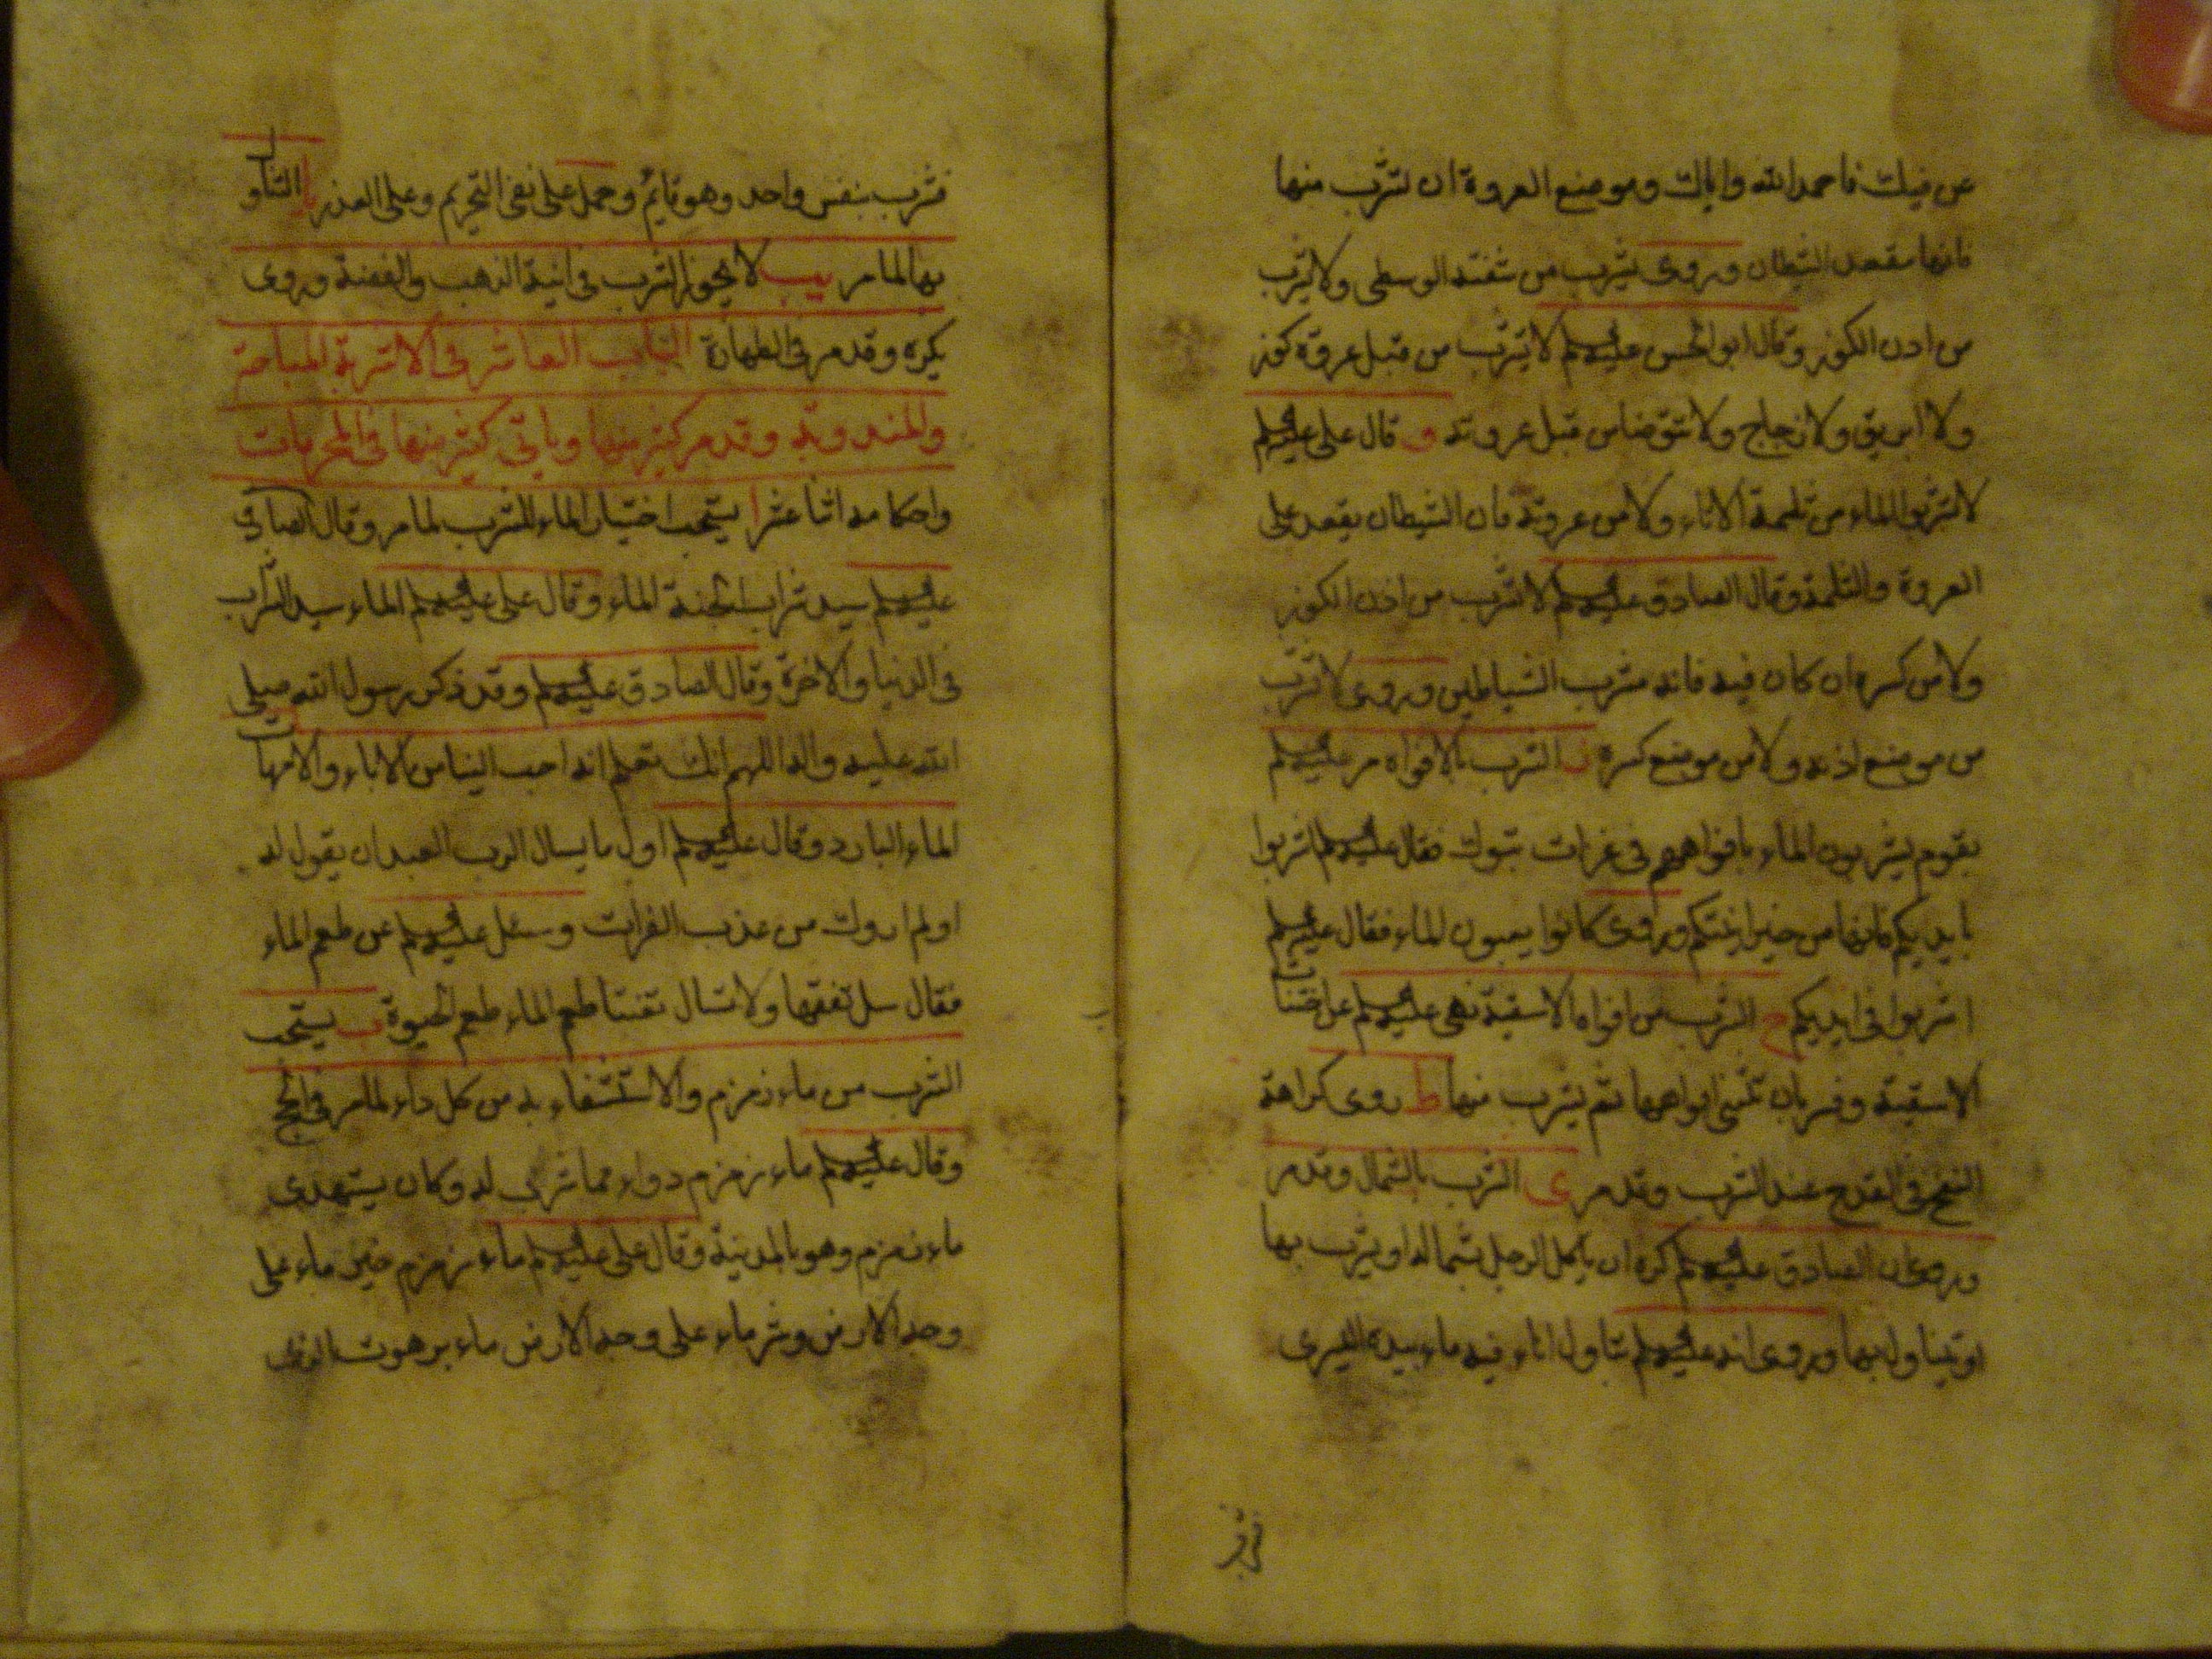 عن فيك فاحمد الله واياك وموضع العروة ان تشرب منها
فانها مقعد الشيطان وروى يشرب من شفته الوسطى ولا يشرب
من اذن الكوز وقال ابو الحسن عليه السلم لا يشرب من قبل عروة كوز
ولا ابريق ولا زجاج ولا تتوضا من قبل عروته و قال على عليه السلم
لا تشربوا الماء من ثلمة الاناء ولا من عروته فان الشيطان يقعد على
العروة والثلمة وقال الصادق عليه السلم لا تشرب من اذن الكوز
ولا من كسره ان كان فيه فانه مشرب الشياطين وروى لا تشرب
من موضع اذنه ولا من موضع كسره ز الشرب بالافواه مر عليه السلم
بقوم يشربون الماء بافواههم فى غزات تبوك فقال عليه السلم اشربوا
بايديكم فانها من خير انيتكم وروى كانوا يعبون الماء فقال عليه السلم
اشربوا فى ايديكم ح الشرب من افواه الاسقية نهى عليه السلم عن اختناث
الاسقية وفسر بان تثنى افواهها ثم يشرب منها ط روى كراهة
النفخ فى القدح عند الشرب وقد مر ى الشرب بالشمال وقد مر
وروى ان الصادق عليه السلم كره ان ياكل الرجل بشماله او يشرب بها
او يتناول بها وروى انه عليه السلم تناول اناء فيه ماء بيده اليسرى
فشرب
فشرب بنفس واحد وهو قايم وحمل على نفى التحريم وعلى العذر يا التناول
بها لما مر يب لا يجوز الشرب فى انية الذهب والفضة وروى
يكره وقد مر فى الطهارة الباب العاشر فى الاشربة المباحة
والمندوبة وقد مر كثير منها وياتى كثير منها فى المحرمات
واحكامه اثنا عشر ا يستحب اختيار الماء للشرب لما مر وقال الصادق
عليه السلم سيد شراب الجنة الماء وقال على عليه السلم الماء سيد الشراب
فى الدنيا والاخرة وقال الصادق عليه السلم وقد ذكر رسول الله صلى
الله عليه واله اللهم انك تعلم انه احب الينا من الاباء والامهات
الماء البارد وقال عليه السلم اول ما يسال الرب العبد ان يقول له
اولم اروك من عذب الفرات وسئل عليه السلم عن طعم الماء
فقال سل تفقها ولا تسال تعنتا طعم الماء طعم الحيوة ب يستحب
الشرب من ماء زمزم والاستشفاء به من كل داء لما مر فى الحج
وقال عليه السلم ماء زمزم دواء مما شرب له وكان يستهدى
ماء زمزم وهو بالمدينة وقال على عليه السلم ماء زمزم خير ماء على
وجه الارض وشر ماء على وجه الارض ماء برهوت الذى